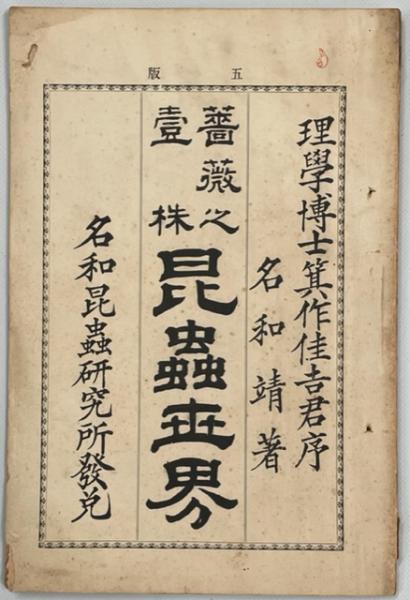 五版
理學博士箕作佳吉君序
名和靖著
薔薇之
壹株
昆蟲世界
名和昆蟲研究所發兌